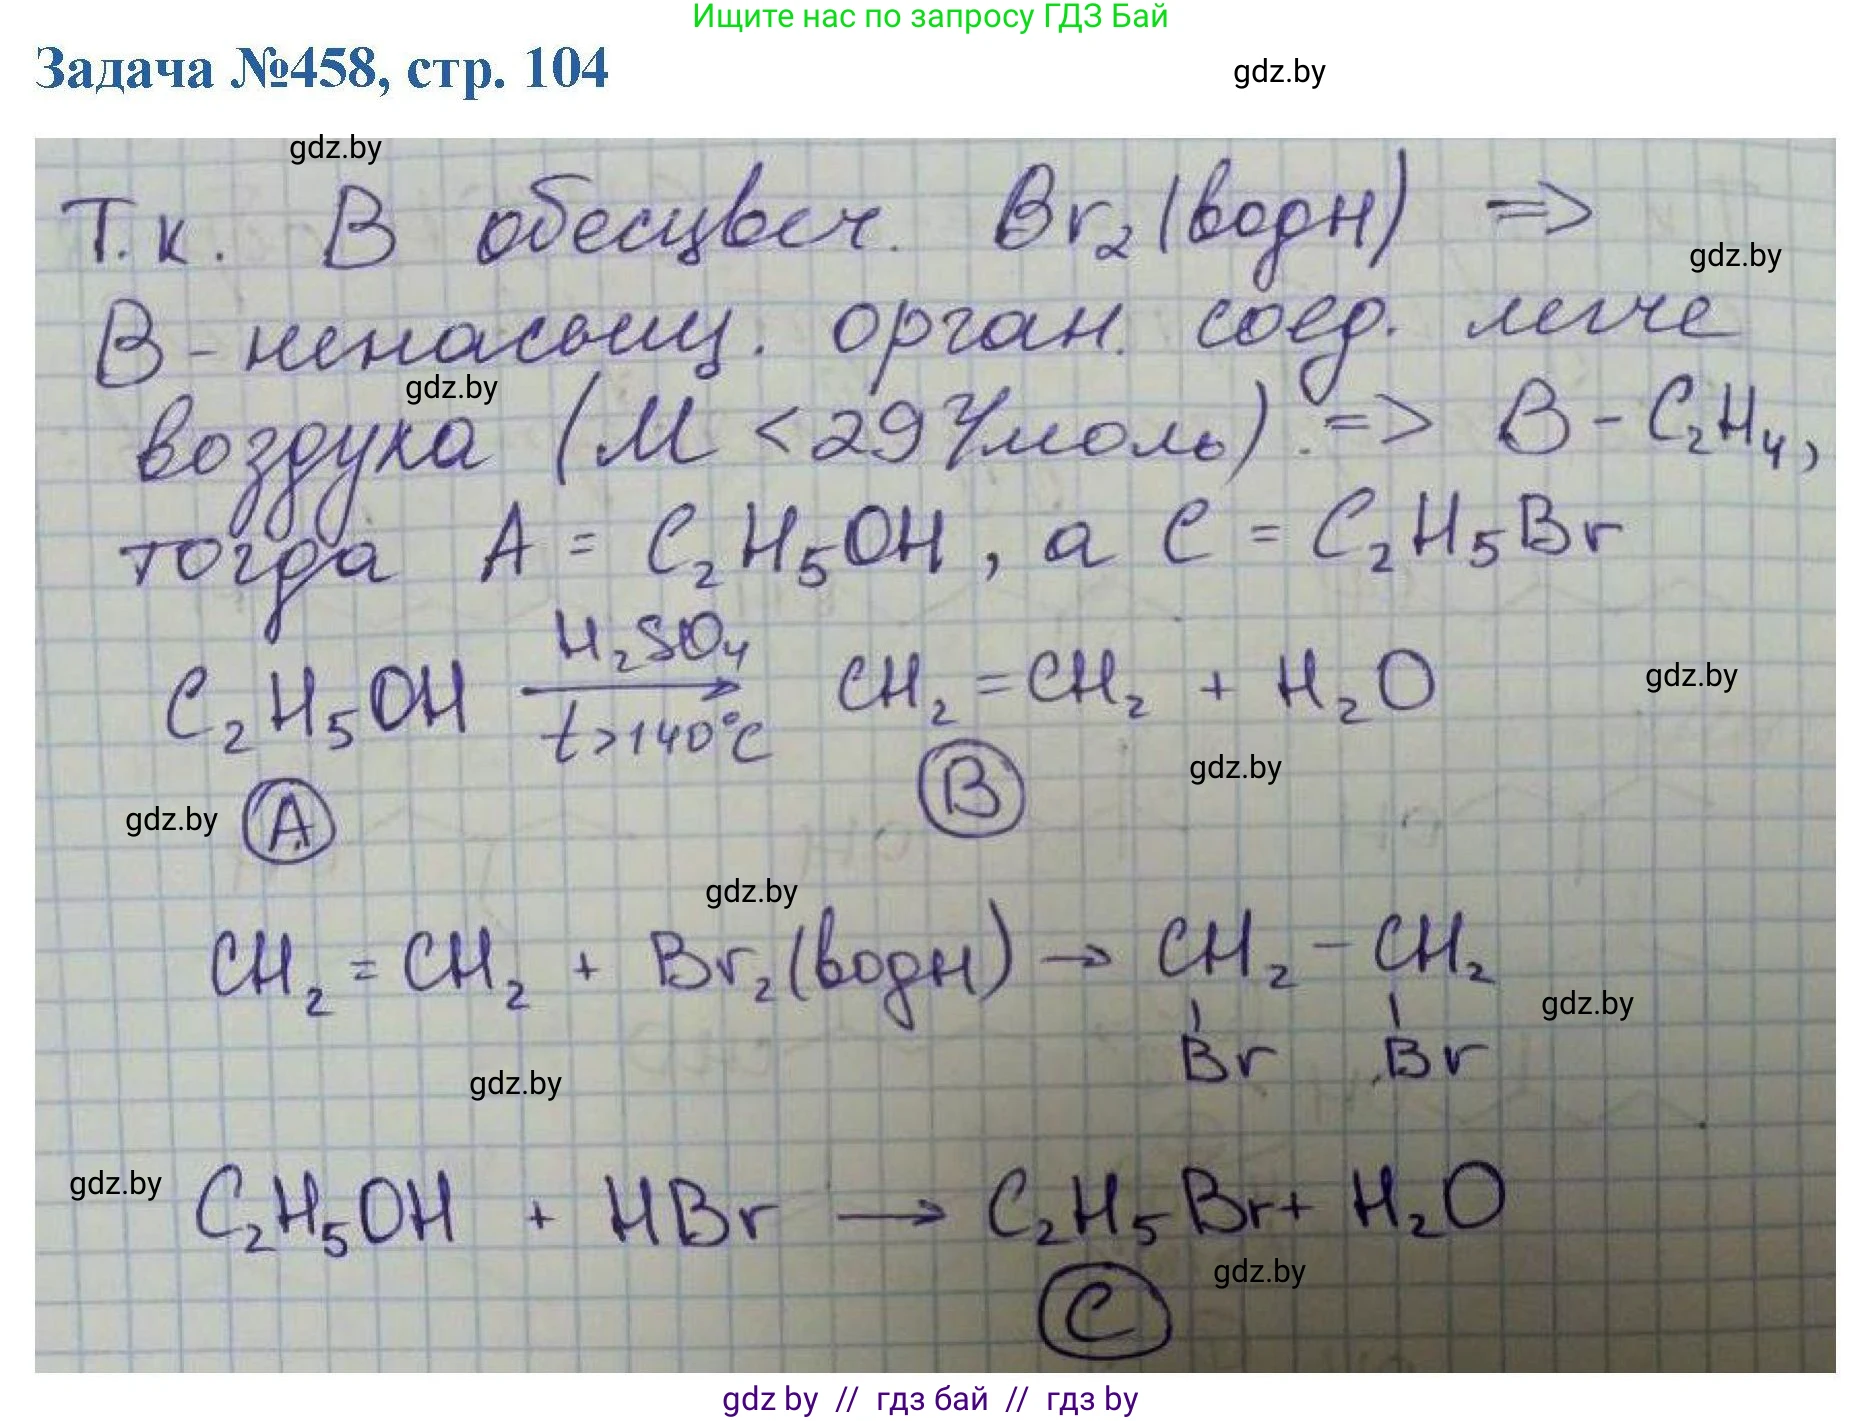 Ищите нас по запросу ГДЗ Бай
Задача №458, стр. 104
gdz.by
gdz.by
Т.к. В обесцвеч. Br₂(водн) ⇒
gdz.by
В - ненасыщ. орган. соед. легче
gdz.by
воздуха (М < 29 г/моль). ⇒ В - C₂H₄,
тогда А = C₂H₅OH, а С = C₂H₅Br
C₂H₅OH —H₂SO₄, t>140°C→ CH₂=CH₂ + H₂O
gdz.by
gdz.by
gdz.by
A B
gdz.by
CH₂=CH₂ + Br₂(водн) → CH₂-CH₂
gdz.by
Br Br
gdz.by
gdz.by
C₂H₅OH + HBr → C₂H₅Br + H₂O
gdz.by
C
gdz by // гдз бай // гдз by